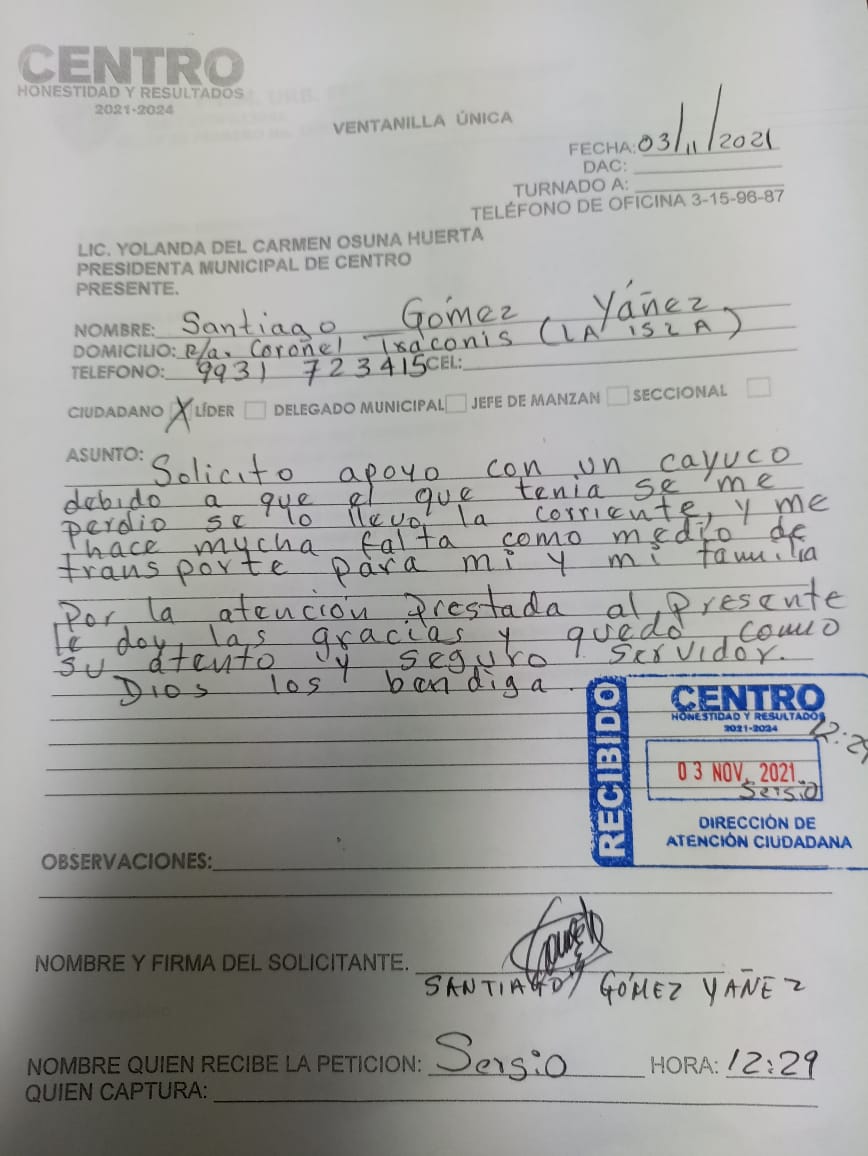 CENTRO
HONESTIDAD Y RESULTADOS
2021-2024
VENTANILLA ÚNICA
FECHA: 03/11/2021
DAC:
TURNADO A:
TELÉFONO DE OFICINA 3-15-96-87
LIC. YOLANDA DEL CARMEN OSUNA HUERTA
PRESIDENTA MUNICIPAL DE CENTRO
PRESENTE.
NOMBRE: Santiago Gómez Yáñez
DOMICILIO: R/a. Coroñel Traconis (LA ISLA)
TELEFONO: 9931 723415 CEL:
CIUDADANO X LÍDER DELEGADO MUNICIPAL JEFE DE MANZAN SECCIONAL
ASUNTO: Solicito apoyo con un cayuco
debido a que el que tenia se me
perdio se lo llevo la corriente, y me
hace mycha falta como medio de
transporte para mi y mi familia
Por la atención Prestada al Presente
le doy las gracias y quedo como
su atento y seguro servidor.
Dios los bendiga.
RECIBIDO
CENTRO
HONESTIDAD Y RESULTADOS
2021-2024
12:29
03 NOV. 2021
Sergio
DIRECCIÓN DE
ATENCIÓN CIUDADANA
OBSERVACIONES:
NOMBRE Y FIRMA DEL SOLICITANTE.
SANTIAGO GÓMEZ YAÑEZ
NOMBRE QUIEN RECIBE LA PETICION: Sergio HORA: 12:29
QUIEN CAPTURA: